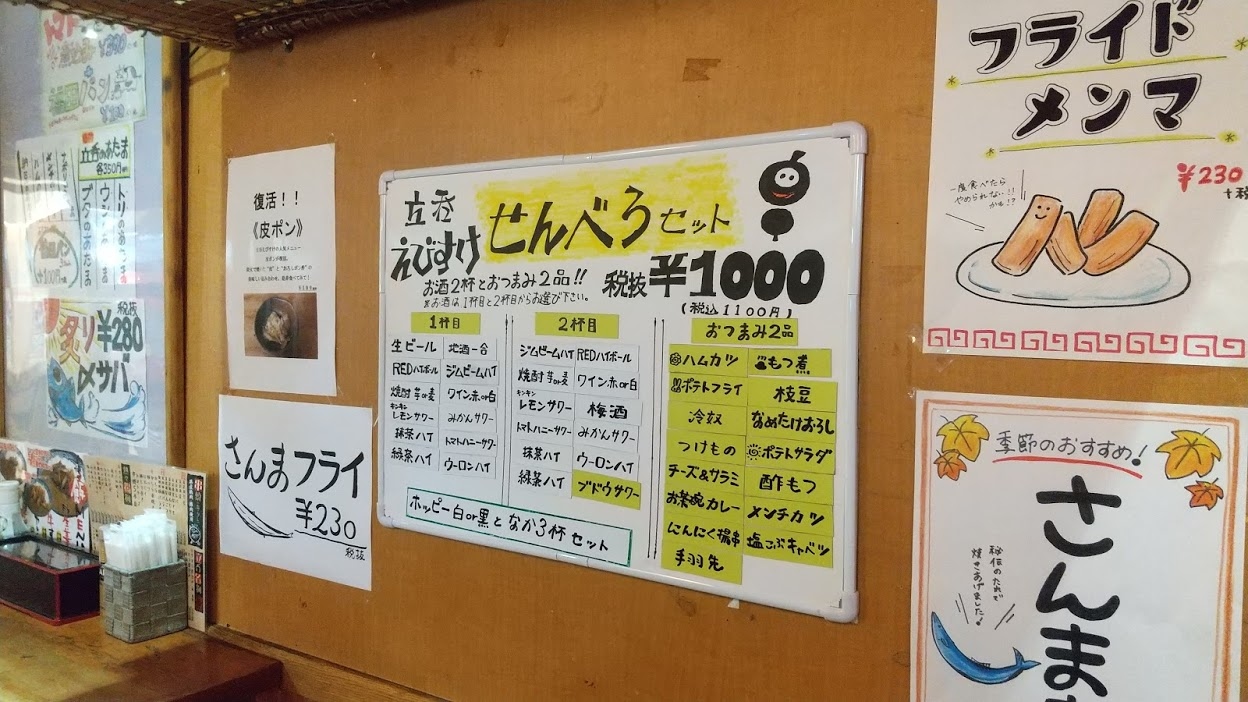 ¥390
¥300
立呑のあたま
各350円
トリのあたま
ウシのあたま
ブタのあたま
税抜
炙り
¥280
〆サバ
復活！！
《皮ポン》
さんまフライ
¥230
税抜
立呑
えびすけ
せんべろセット
お酒2杯とおつまみ2品!!
※お酒は1杯目と2杯目からお選び下さい。
税抜¥1000
(税込1100円)
1杯目
生ビール 地酒一合
REDハイボール ジムビームハイ
焼酎 芋or麦 ワイン赤or白
キンキン
レモンサワー みかんサワー
抹茶ハイ トマトハニーサワー
緑茶ハイ ウーロンハイ
2杯目
ジムビームハイ REDハイボール
焼酎 芋or麦 ワイン赤or白
キンキン
レモンサワー 梅酒
トマトハニーサワー みかんサワー
抹茶ハイ ウーロンハイ
緑茶ハイ ブドウサワー
ホッピー白or黒となか3杯セット
おつまみ2品
ハムカツ もつ煮
ポテトフライ 枝豆
冷奴 なめたけおろし
つけもの ポテトサラダ
チーズ&サラミ 酢もつ
お茶碗カレー メンチカツ
にんにく揚串 塩こぶキャベツ
手羽先
フライド
メンマ
¥230
+税
一度食べたら
やめられない!!
かも!?
季節のおすすめ!
さんま
秘伝のたれで
焼きあげました!